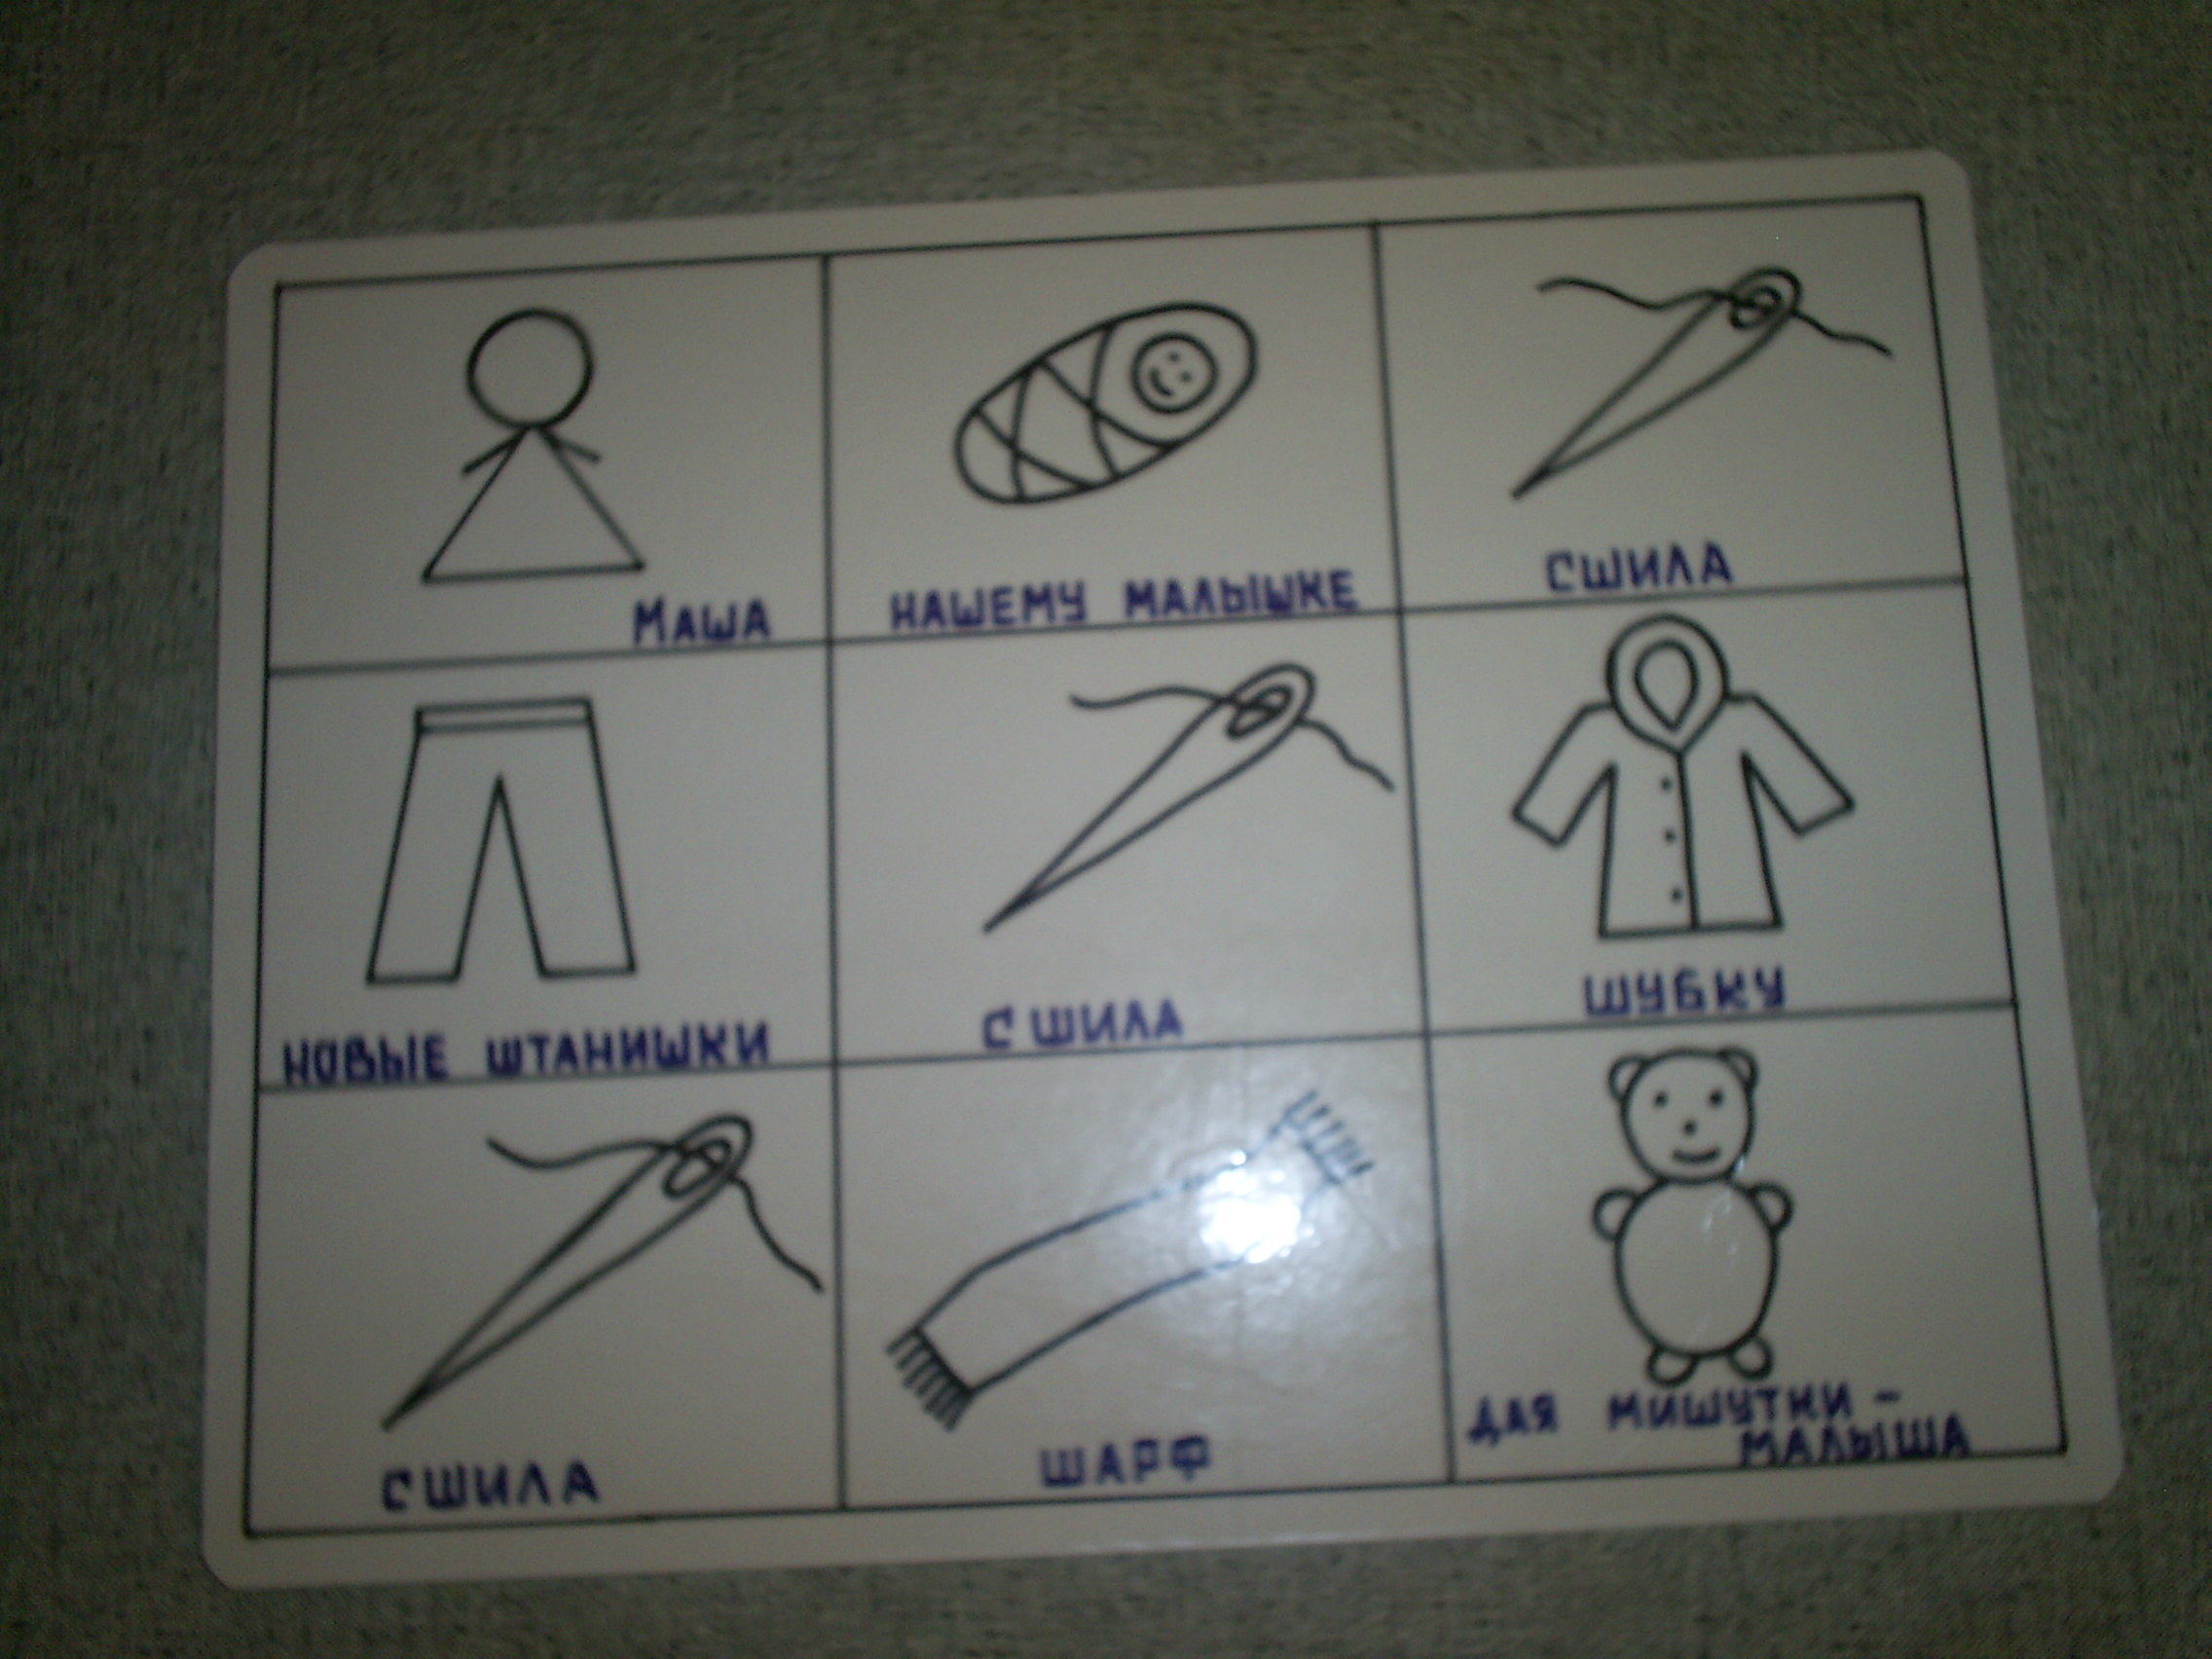 Маша
НАШЕМУ МАЛЫШКЕ
СШИЛА
НОВЫЕ ШТАНИШКИ
СШИЛА
ШУБКУ
СШИЛА
ШАРФ
ДЛЯ МИШУТКИ -
МАЛЫША